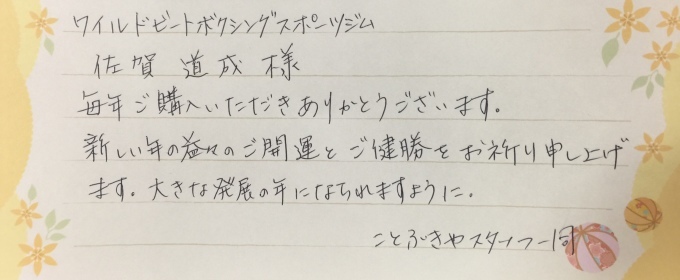 ワイルドビートボクシングスポーツジム
佐賀 道成 様
毎年ご購入いただきありがとうございます。
新しい年の益々のご開運とご健勝をお祈り申し上げ
ます。大きな発展の年になられますように。
ことぶきやスタッフ一同